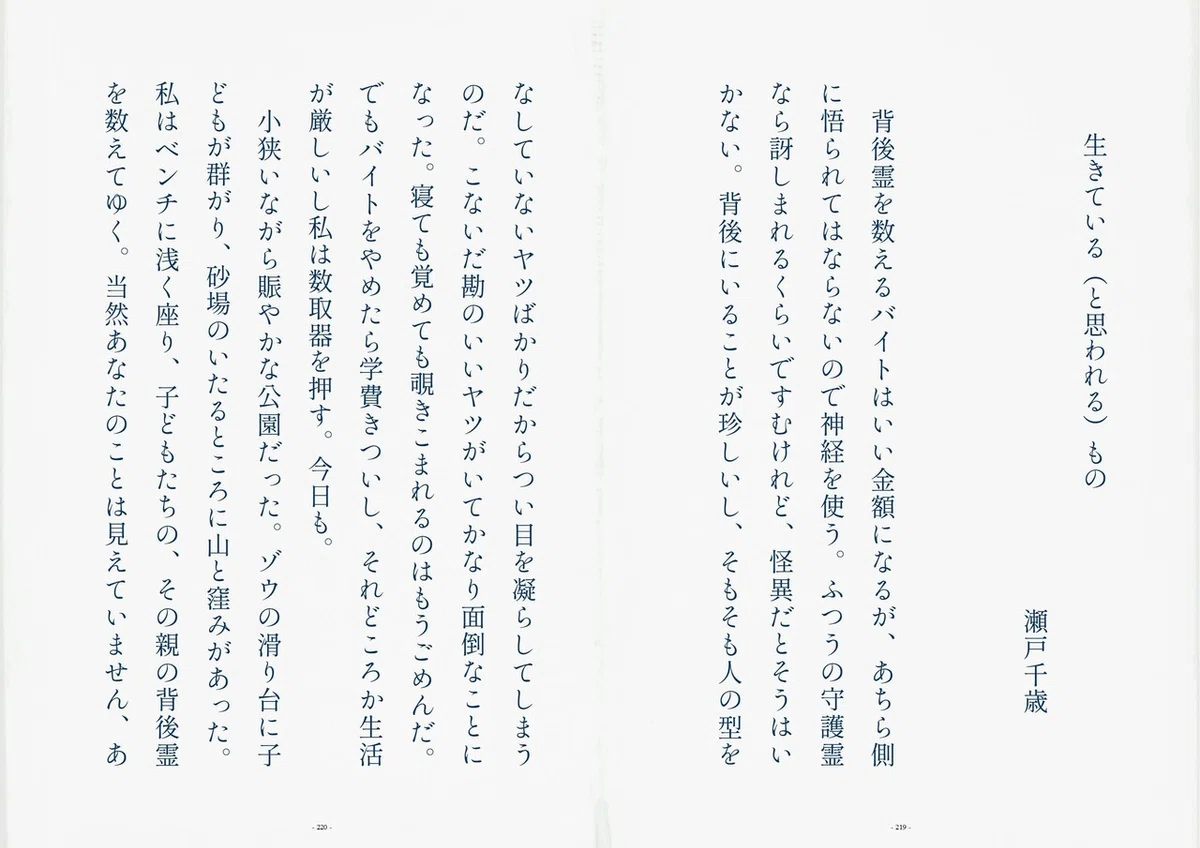 生きている（と思われる）もの
瀬戸千歳
背後霊を数えるバイトはいい金額になるが、あちら側
に悟られてはならないので神経を使う。ふつうの守護霊
なら訝しまれるくらいですむけれど、怪異だとそうはい
かない。背後にいることが珍しいし、そもそも人の型を
- 219 -
なしていないヤツばかりだからつい目を凝らしてしまう
のだ。こないだ勘のいいヤツがいてかなり面倒なことに
なった。寝ても覚めても覗きこまれるのはもうごめんだ。
でもバイトをやめたら学費きついし、それどころか生活
が厳しいし私は数取器を押す。今日も。
小狭いながら賑やかな公園だった。ゾウの滑り台に子
どもが群がり、砂場のいたるところに山と窪みがあった。
私はベンチに浅く座り、子どもたちの、その親の背後霊
を数えてゆく。当然あなたのことは見えていません、あ
- 220 -